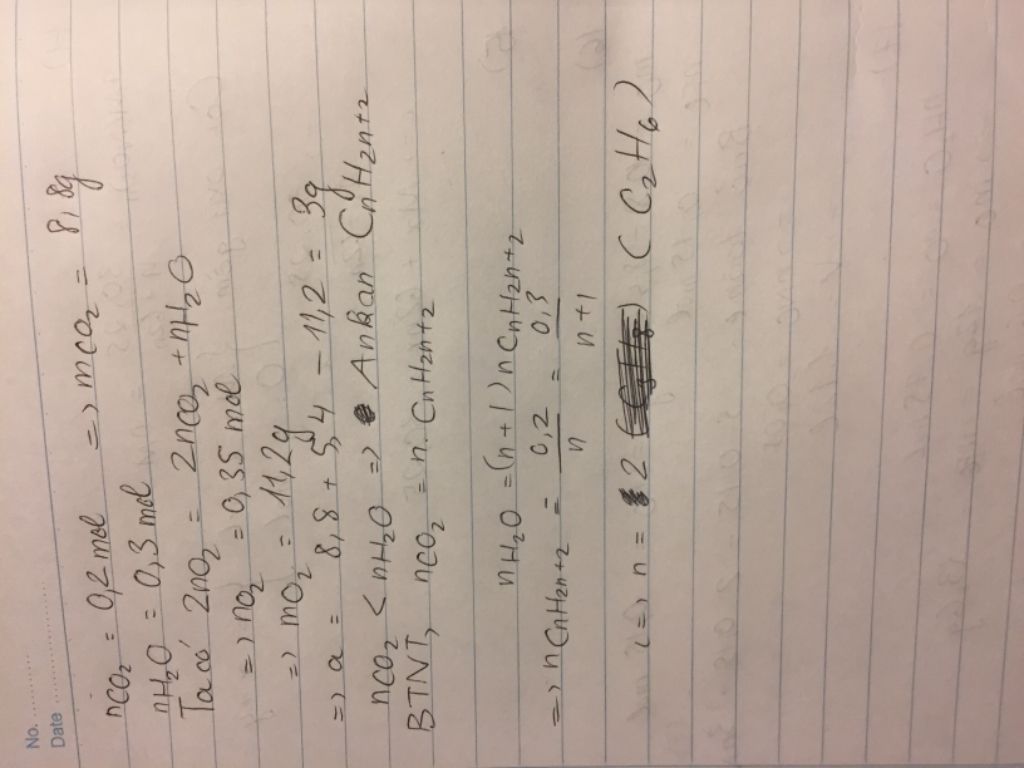 No. ............
Date ........................
nCO₂ = 0,2 mol => mCO₂ = 8,8g
nH₂O = 0,3 mol
Ta có 2nO₂ = 2nCO₂ + nH₂O
=> nO₂ = 0,35 mol
=> mO₂ = 11,2g
=> a = 8,8 + 5,4 - 11,2 = 3g
nCO₂ < nH₂O => Ankan CnH2n+2
BTNT, nCO₂ = n. CnH2n+2
nH₂O = (n+1) nCnH2n+2
=> nCnH2n+2 = 0,2/n = 0,3/n+1
<=> n = 2 (C₂H₆)